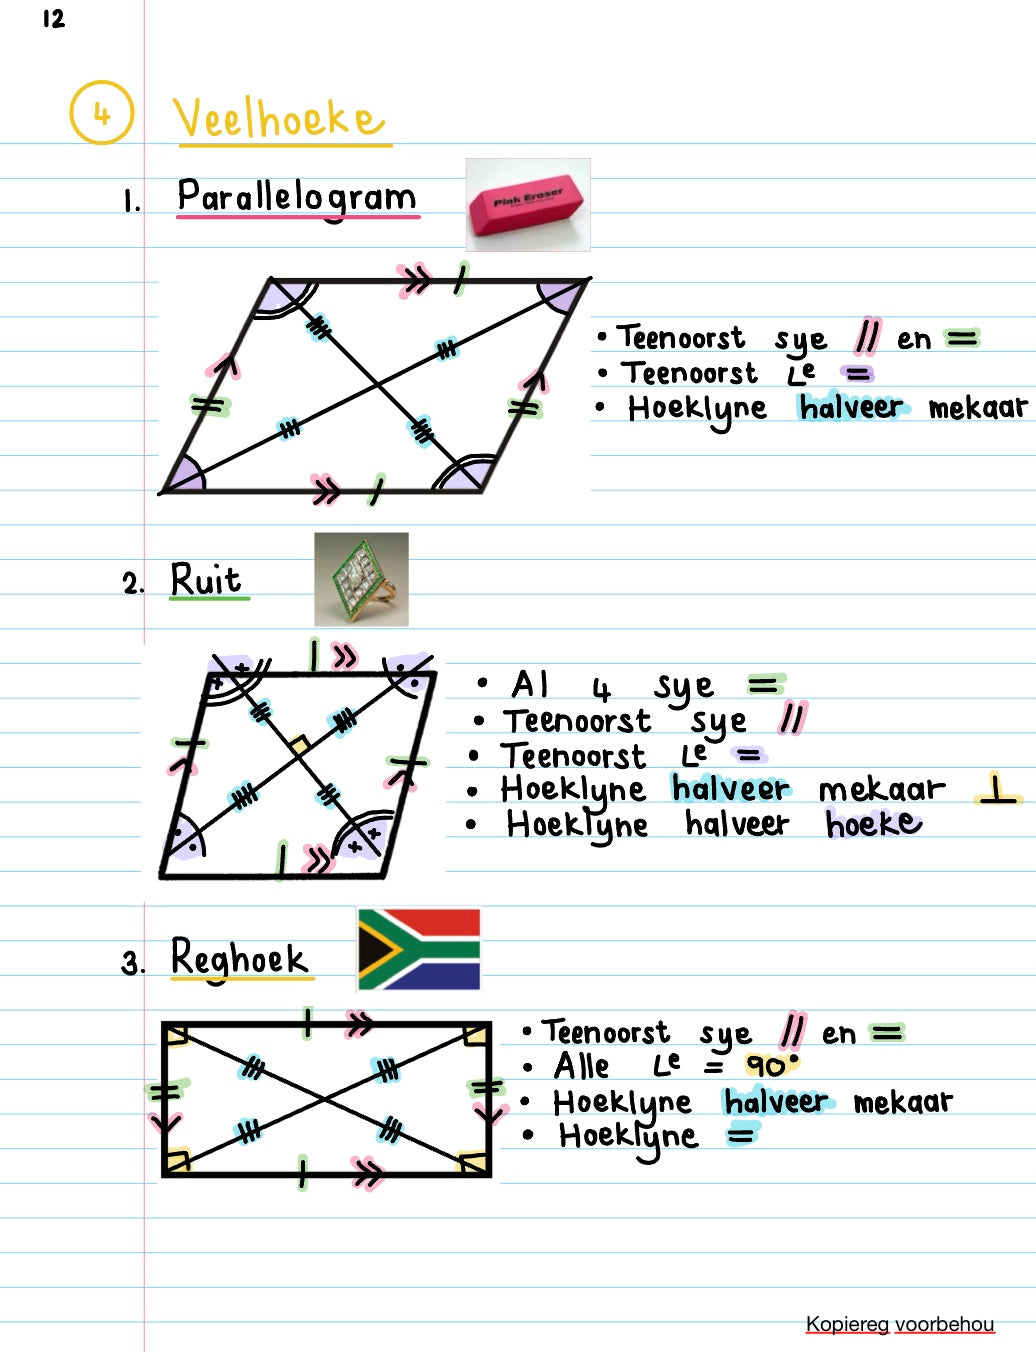 12
4 Veelhoeke
1. Parallelogram
Pink Eraser
• Teenoorst sye // en =
• Teenoorst ∠ᵉ =
• Hoeklyne halveer mekaar
2. Ruit
• Al 4 sye =
• Teenoorst sye //
• Teenoorst ∠ᵉ =
• Hoeklyne halveer mekaar ⊥
• Hoeklyne halveer hoeke
3. Reghoek
• Teenoorst sye // en =
• Alle ∠ᵉ = 90°
• Hoeklyne halveer mekaar
• Hoeklyne =
Kopiereg voorbehou